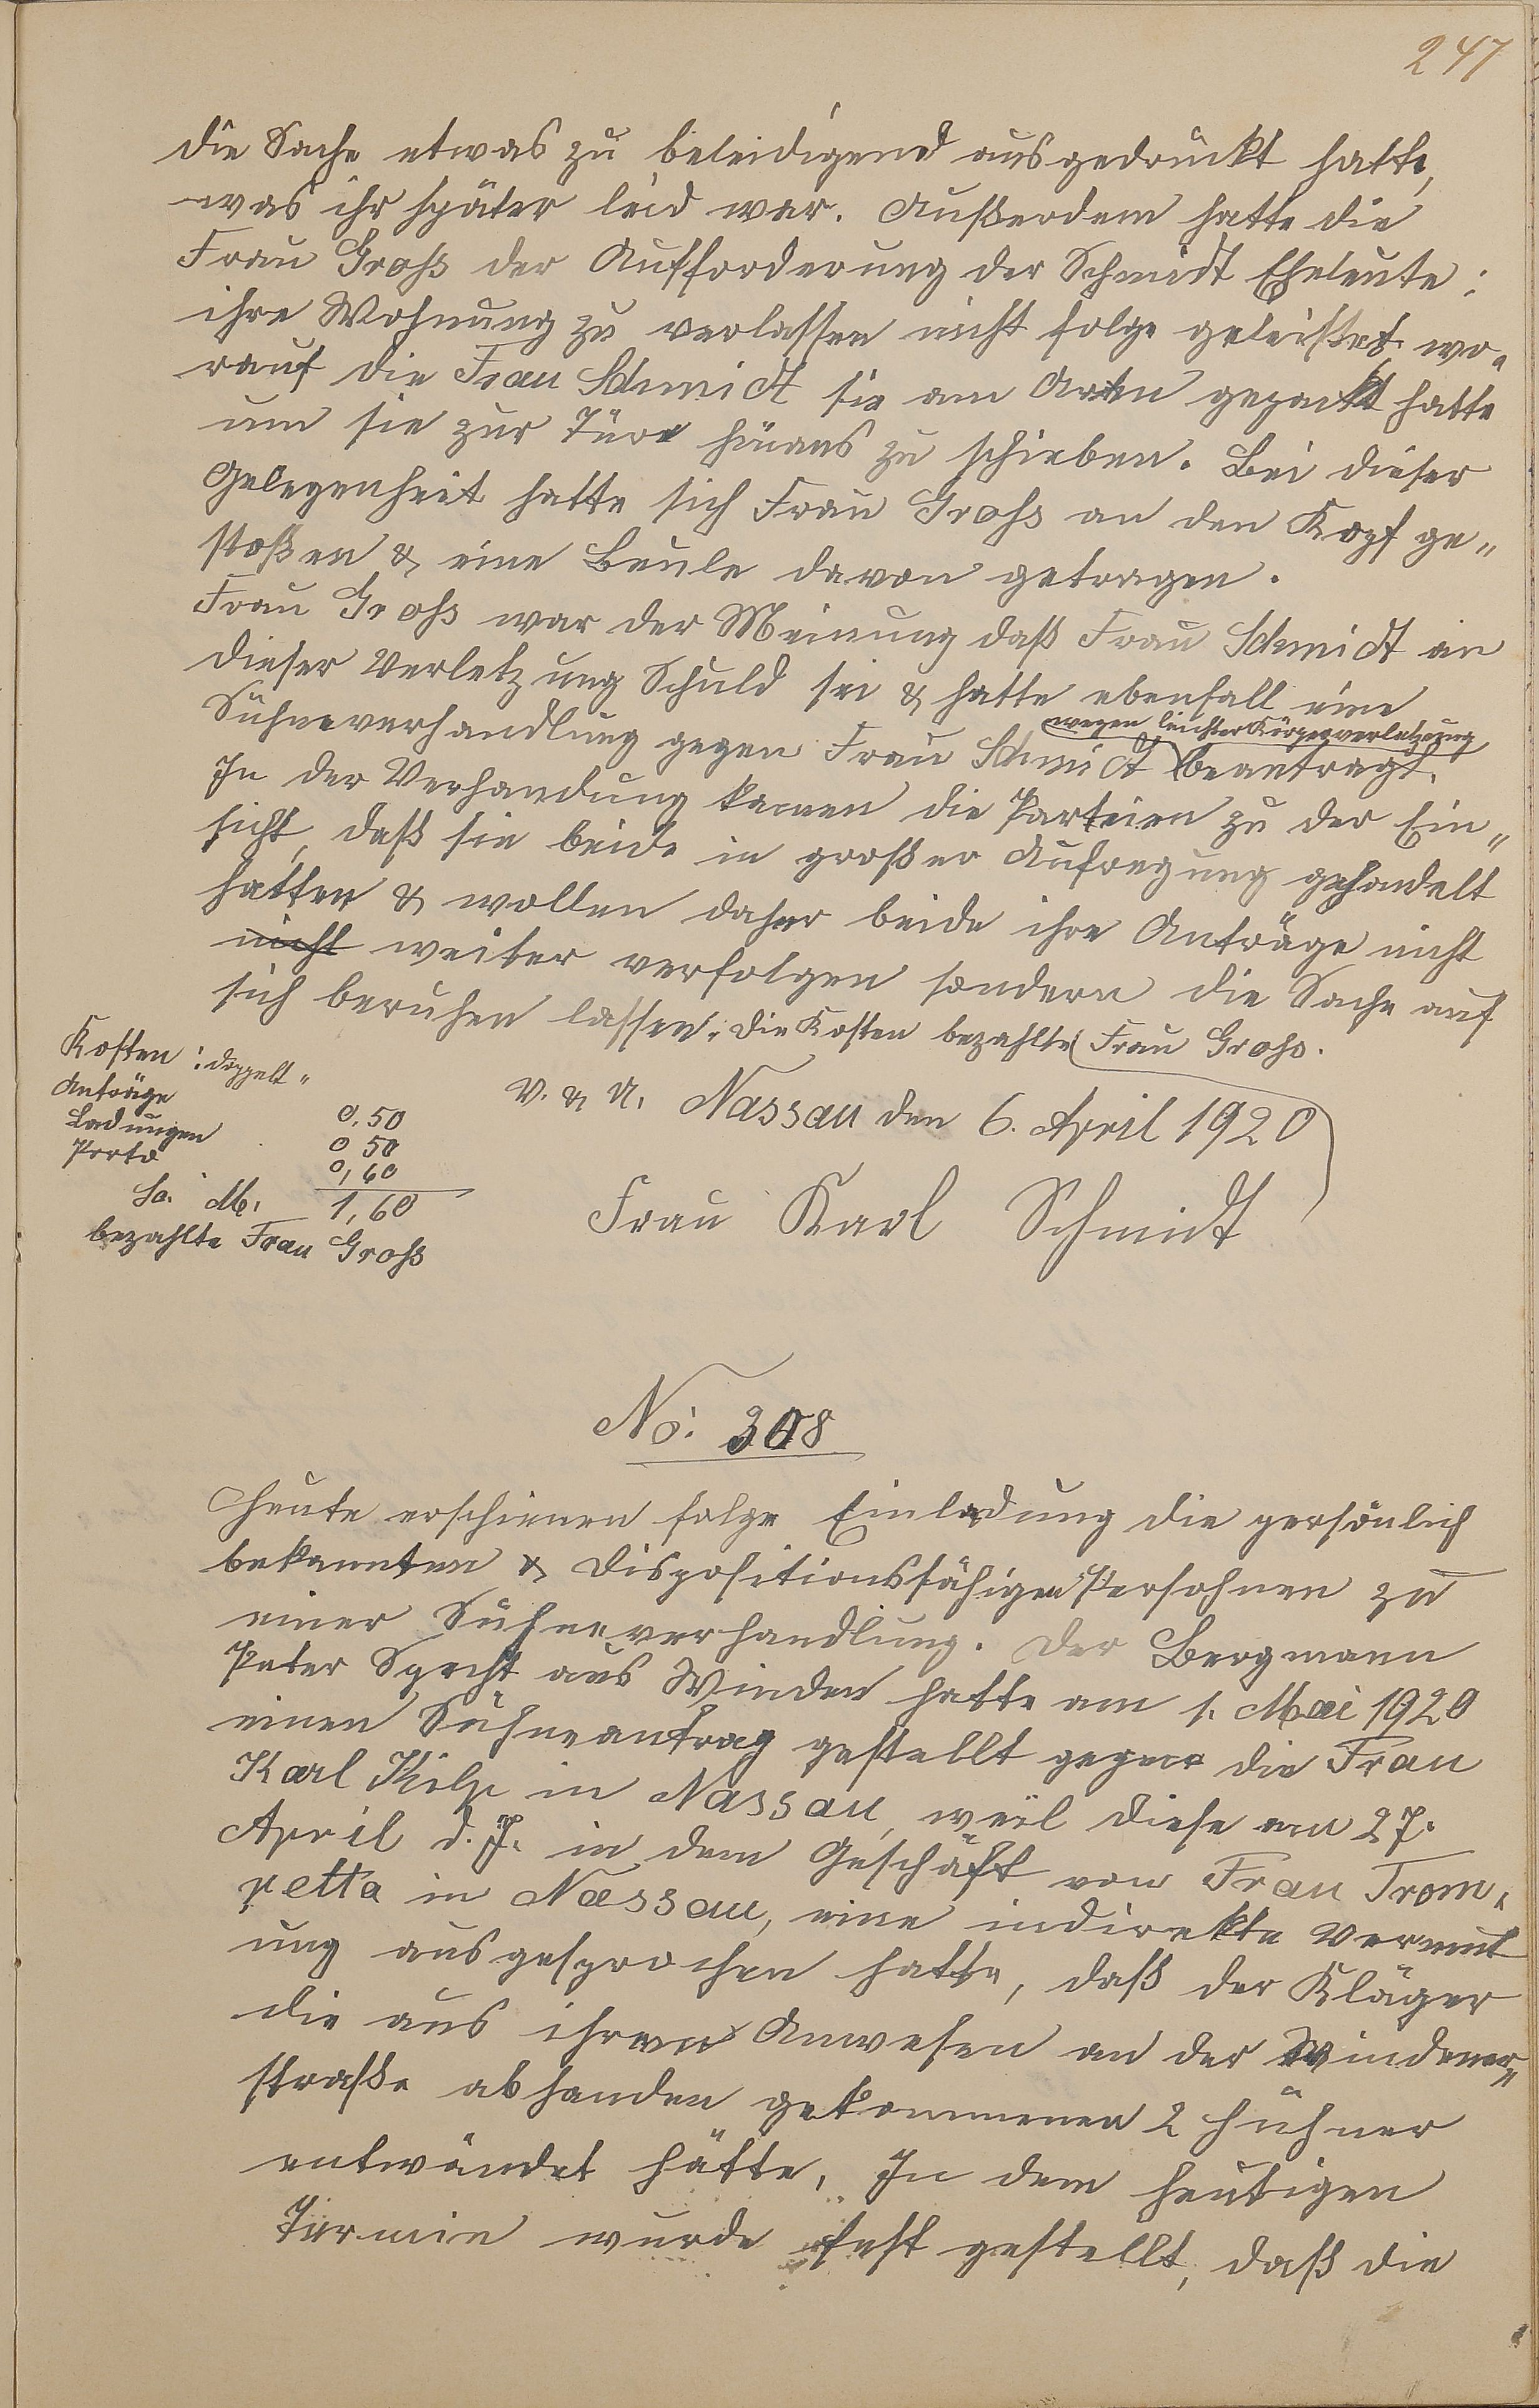 247
die Sache etwas zu beleidigend ausgedrückt hatte,
was ihr später leid war. Außerdem hatte die
Frau Groß der Aufforderung der Schmidt Eheleute:
ihre Wohnung zu verlassen nicht folge geleistet wo-
rauf die Frau Schmidt sie am Arm gepackt hatte
um sie zur Türe hinaus zu schieben. Bei dieser
Gelegenheit hatte sich Frau Groß an den Kopf ge-
stoßen & eine Beule davon getragen.
Frau Groß war der Meinung daß Frau Schmidt an
dieser Verletzung Schuld sei & hatte ebenfall eine
wegen leichter Körperverletzung
Sühneverhandlung gegen Frau Schmidt beantragt.
In der Verhandung kamen die Parteien zu der Ein-
sicht, daß sie beide in großer Aufregung gehandelt
hatten & wollen daher beide ihre Anträge nicht
nicht weiter verfolgen sondern die Sache auf
sich beruhen lassen. Die Kosten bezahlte Frau Groß.
Kosten: doppelt
Anträge 0,50
Ladungen 0 50
Porto 0,60
Sa. M. 1,60
bezahlte Frau Groß
V. & U. Nassau den 6. April 1920
Frau Karl Schmidt
No: 308
Heute erschienen folge Einladung die persönlich
bekannten & dispositionsfähigen Persohnen zu
einer Sühneverhandlung. Der Bergmann
Peter Specht aus Winden hatte am 1. Mai 1920
einen Sühneantrag gestellt gegen die Frau
Karl Kilp in Nassau, weil diese am 27.
April d. J. in dem Geschäft von Frau Trom-
petta in Nassau, eine indirekte Vermut
ung ausgesprochen hatte, daß der Kläger
die aus ihrem Anwesen an der Windener-
straße abhanden gekommenen 2 Hühner
entwendet hätte. In dem heutigen
Termin wurde fest gestellt, daß die